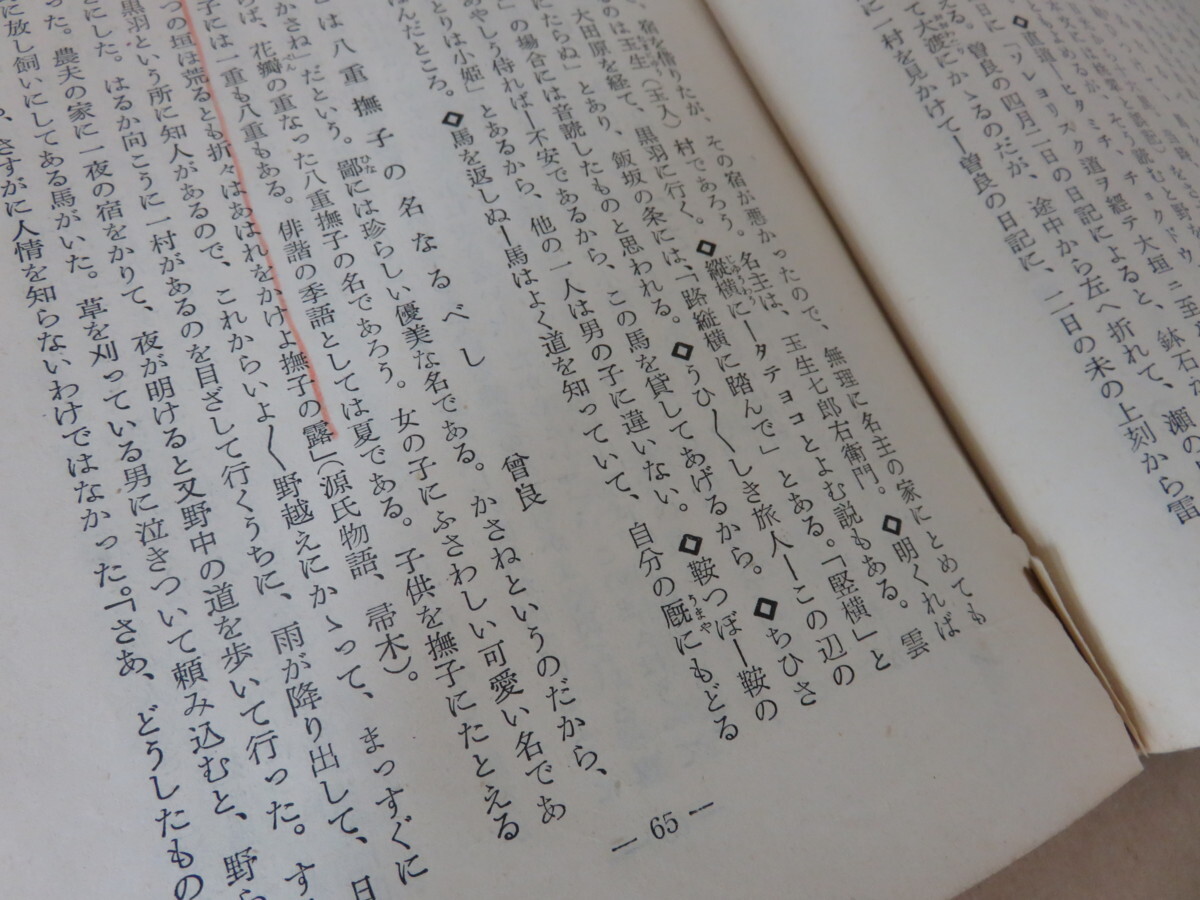 ◇直道ー
日に「ソレヨリスグ道ヲ經テ大垣ニ至
える。曽良の四月二日の日記によると、鉢石を
て大渡にかゝるのだが、途中から左へ折れて、瀬の
に一村を見かけてー曽良の日記に、二日の未の上刻から雷
宿を借りたが、その宿が悪かったので、無理に名主の家にとめても
のは玉生(玉入)村であろう。名主は、玉生七郎右衛門。◇明くれば
大田原を経て、黒羽に行く。◇縦横にータテヨコとよむ説もある。「竪横」と
にたらぬ」とあり、飯坂の条には、「路縦横に踏んで」とある。◇うひ〳〵しき旅人ーこの辺の
」の場合には音読したものと思われる。
あやしう侍ればー不安であるから、この馬を貸してあげるから。◇ちひさ
とりは小姫」とあるから、他の一人は男の子に違いない。◇鞍つぼー鞍の
ぼんだところ。◇馬を返しぬー馬はよく道を知っていて、自分の厩にもどる
は八重撫子の名なるべし 曾良
かさね」だという。鄙には珍らしい優美な名である。かさねというのだから、
らば、花瓣の重なった八重撫子の名であろう。女の子にふさわしい可愛い名であ
子には一重も八重もある。俳諧の季語としては夏である。子供を撫子にたとえる
つの垣は荒るとも折々はあはれをかけよ撫子の露」(源氏物語、帚木)。
黒羽という所に知人があるので、これからいよ〳〵野越えにかゝって、まっすぐに
とにした。はるか向こうに一村があるのを目ざして行くうちに、雨が降り出して、日
った。農夫の家に一夜の宿をかりて、夜が明けると又野中の道を歩いて行った。す
に放し飼いにしてある馬がいた。草を刈っている男に泣きついて頼み込むと、野ら
、さすがに人情を知らないわけではなかった。「さあ、どうしたもの
— 65 —